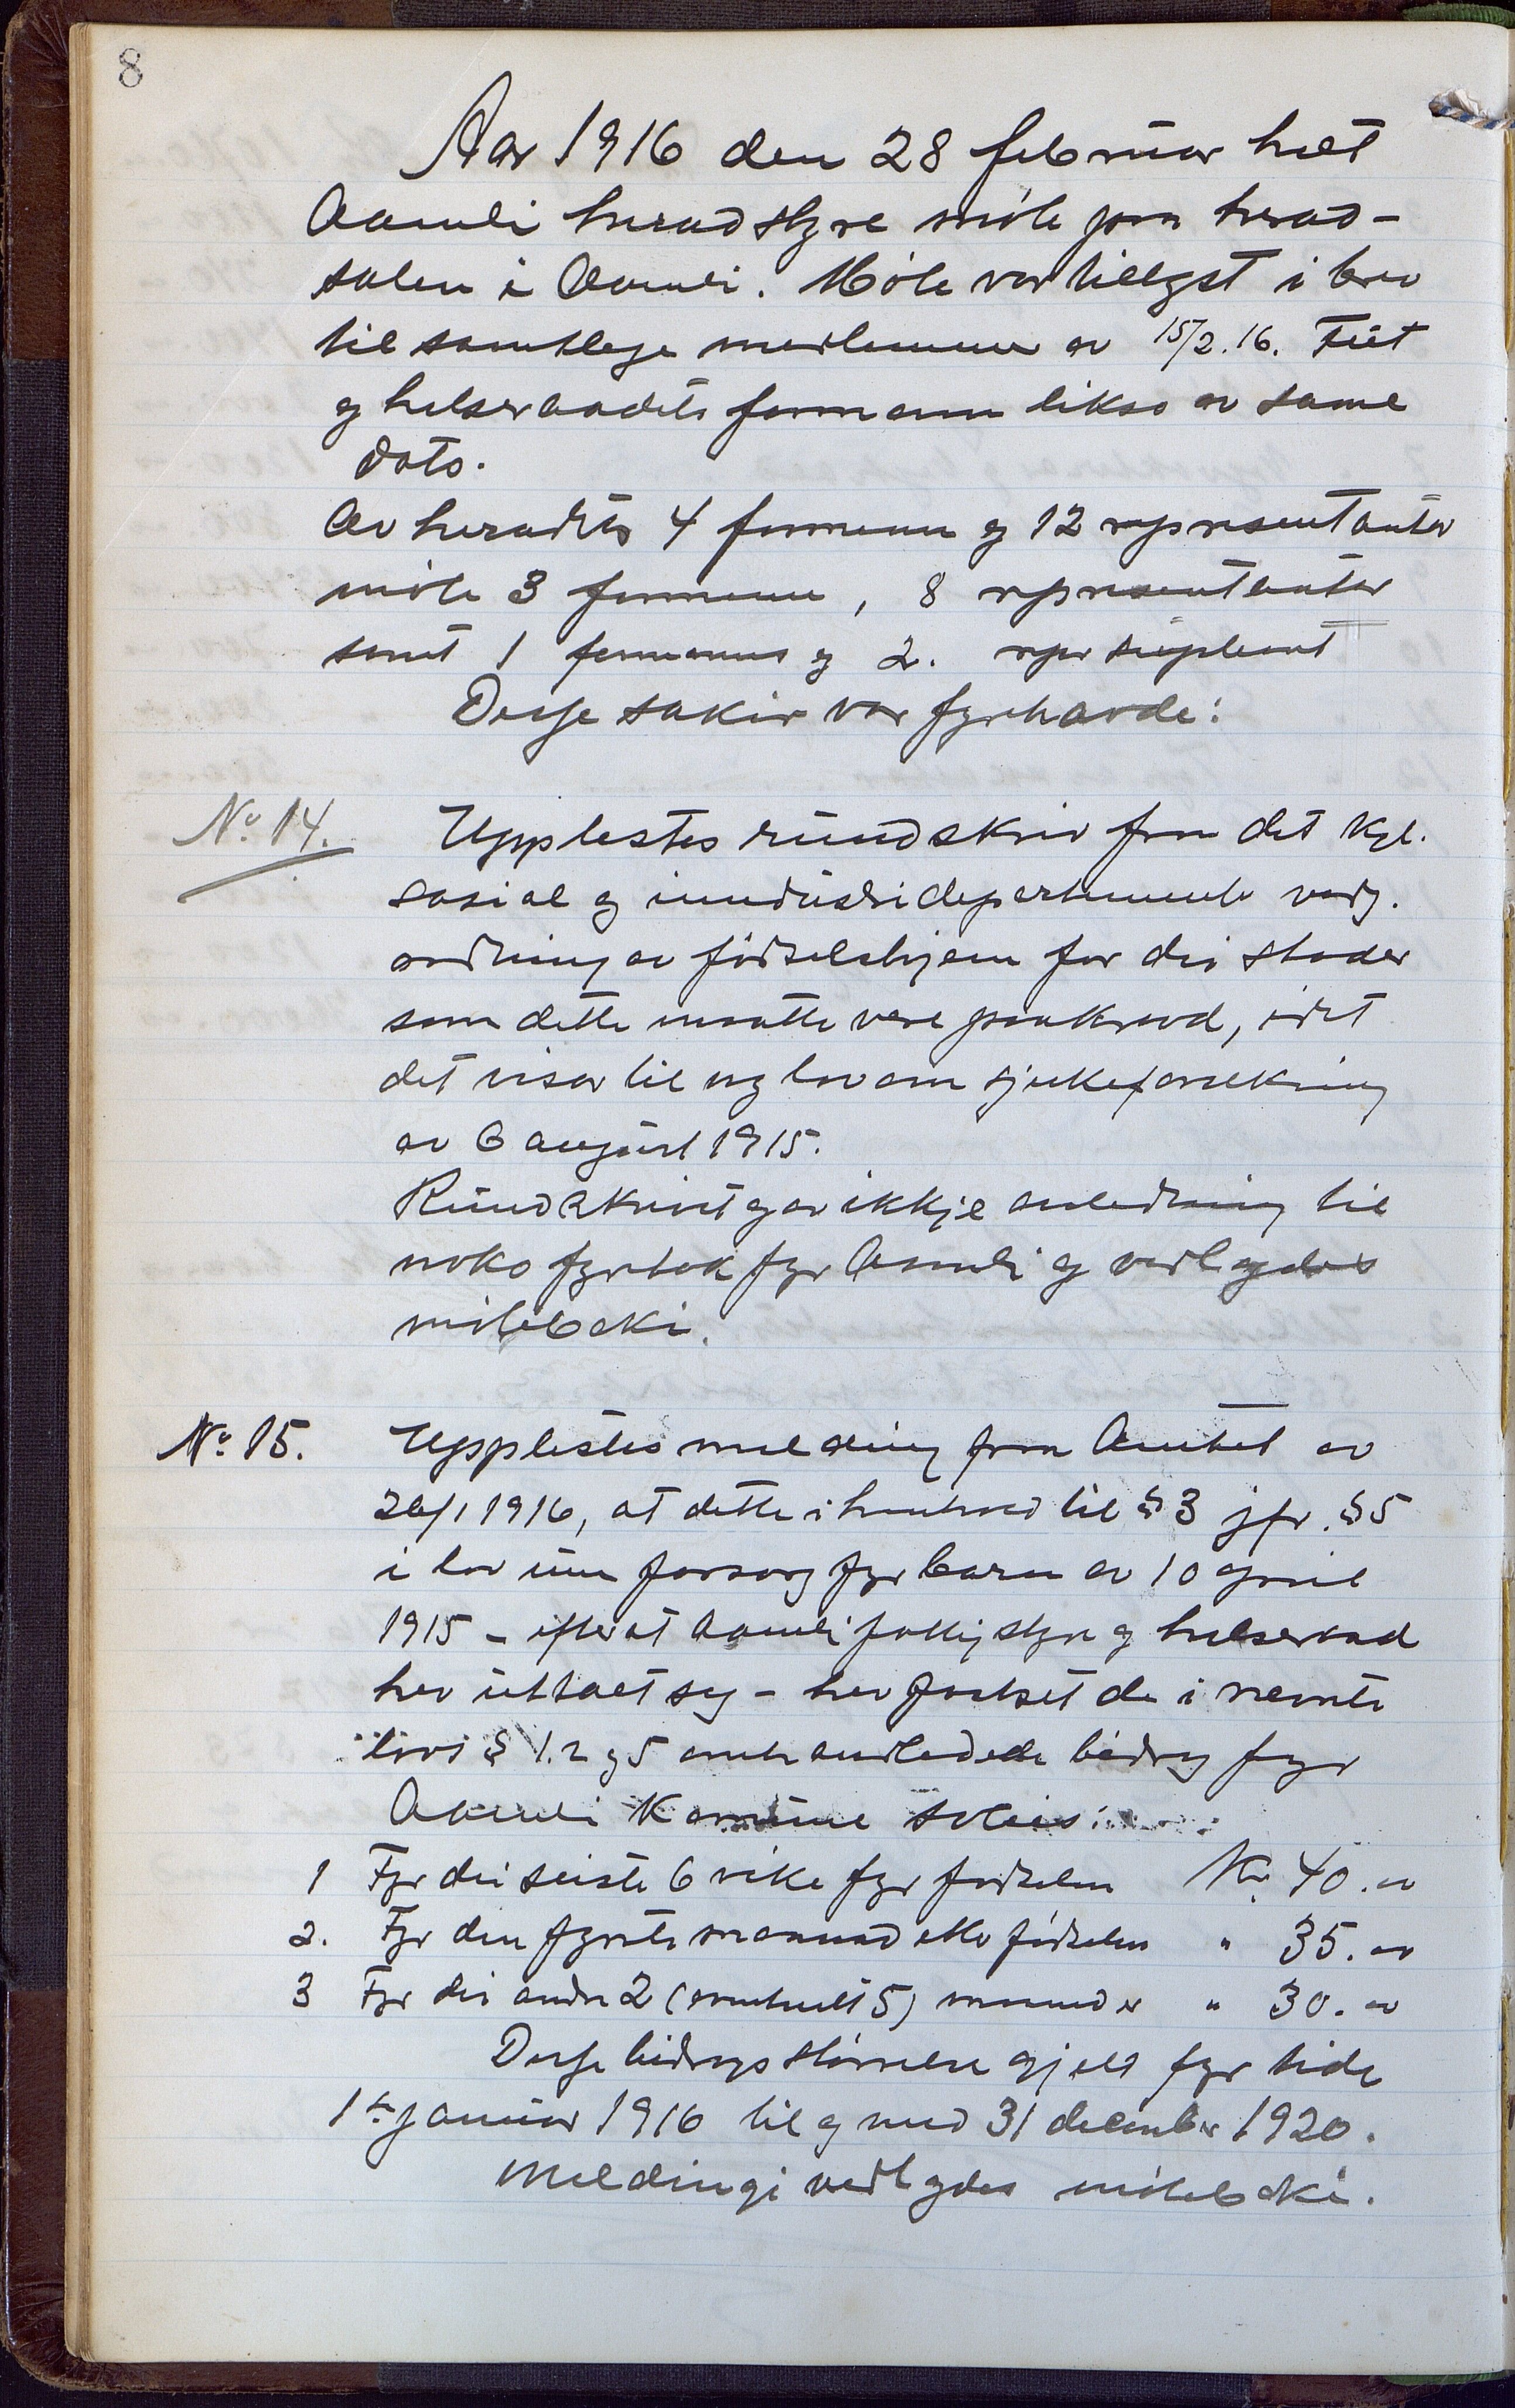 8
Aar 1916 den 28 februar helt
Aamli heradstyre møte paa herad-
salen i Aamli. Møte var tillyst i brev
til samtlege medlemmer av 15/2.16. Fut
og helseraadets formann likso av same
dato.
Av heradets 4 formenn og 12 representanter
møte 3 formenn, 8 representanter
samt 1 formanns og 2. repr supleant
Desse sakir var fyrehavde:
No 14. Upplestes rundskriv fra det kgl.
sosial og inndustridepartemente vedg.
ordning av fødselshjem for dei stader
som dette maatte vere paakravd, idet
det viser til ny lov om sjukeforsekring
av 6 august 1915.
Rundskrivet gav ikkje anledning til
noko fyretak fyr Aamli og vedlegdes
møteboki.
No 15. Upplestes melding fraa Amtet av
26/1 1916, at dette i henhold til § 3 jfr. § 5
i lov um forsorg fyr barn av 10 april
1915 - efter at Aamli fattigstyre og helseraad
hev uttalt seg - hev fastset de i nævnte
lovs § 1.2 og 5 omhandlede bidrag fyr
Aamli Komune soleis:
1 Fyr dei seiste 6 vike fyr fødselen Kr. 40.00
2. Fyr den fyrste maanad etter fødselen " 35.00
3 Fyr dei andre 2 (eventuelt 5) maanader " 30.00
Desse bidrags størrelse gjeld fyr tide
1ste januar 1916 til og med 31 december 1920.
Meldingi vedlegdes møteboki.